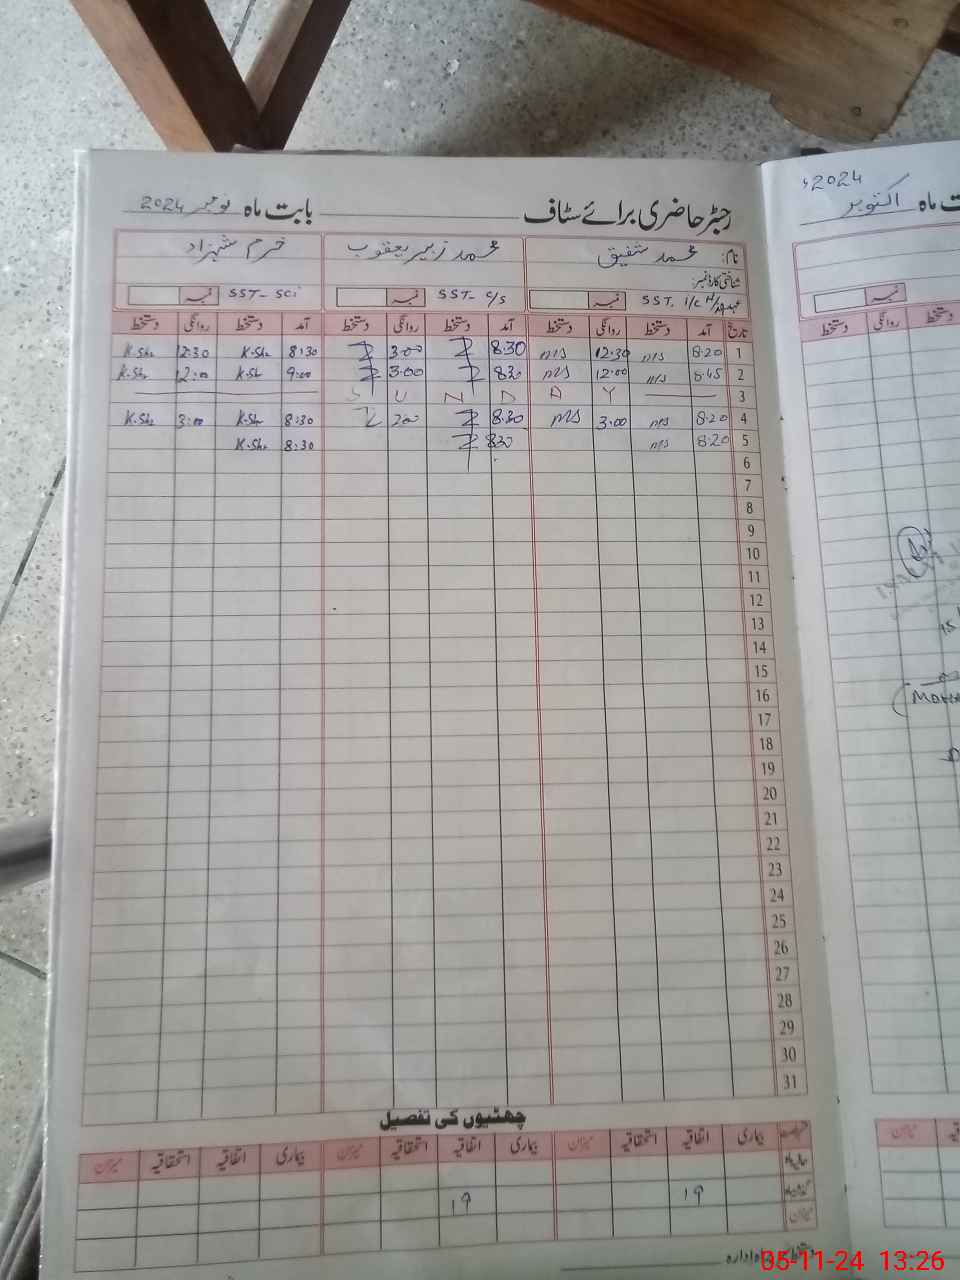 رجسٹر حاضری برائے سٹاف بابت ماہ نومبر 2024
نام: محمد شفیق محمد زبیر یعقوب خرم شہزاد
شناختی کارڈ نمبر:
عہدہ SST. i/c H/M نمبر SST- C/S نمبر SST- Sci نمبر
تاریخ آمد دستخط روانگی دستخط آمد دستخط روانگی دستخط آمد دستخط روانگی دستخط
1 8:20 MS 12:30 MS 8:30 Z 3:00 Z 8:30 K.Sh 12:30 K.Sh
2 8:45 MS 12:00 MS 8:30 Z 3:00 Z 9:00 K.Sh 12:00 K.Sh
3 S U N D A Y
4 8:20 MS 3:00 MS 8:30 Z 200 Z 8:30 K.Sh 3:00 K.Sh
5 8:20 MS 830 Z 8:30 K.Sh
6
7
8
9
10
11
12
13
14
15
16
17
18
19
20
21
22
23
24
25
26
27
28
29
30
31
چھٹیوں کی تفصیل
بیماری اتفاقیہ استحقاقیہ میزان بیماری اتفاقیہ استحقاقیہ میزان بیماری اتفاقیہ استحقاقیہ میزان
حالیہ ماہ
گذشتہ ماہ 19 19
میزان
ادارہ
2024ء
ماہ اکتوبر
نمبر
دستخط روانگی دستخط
میزان
05-11-24 13:26